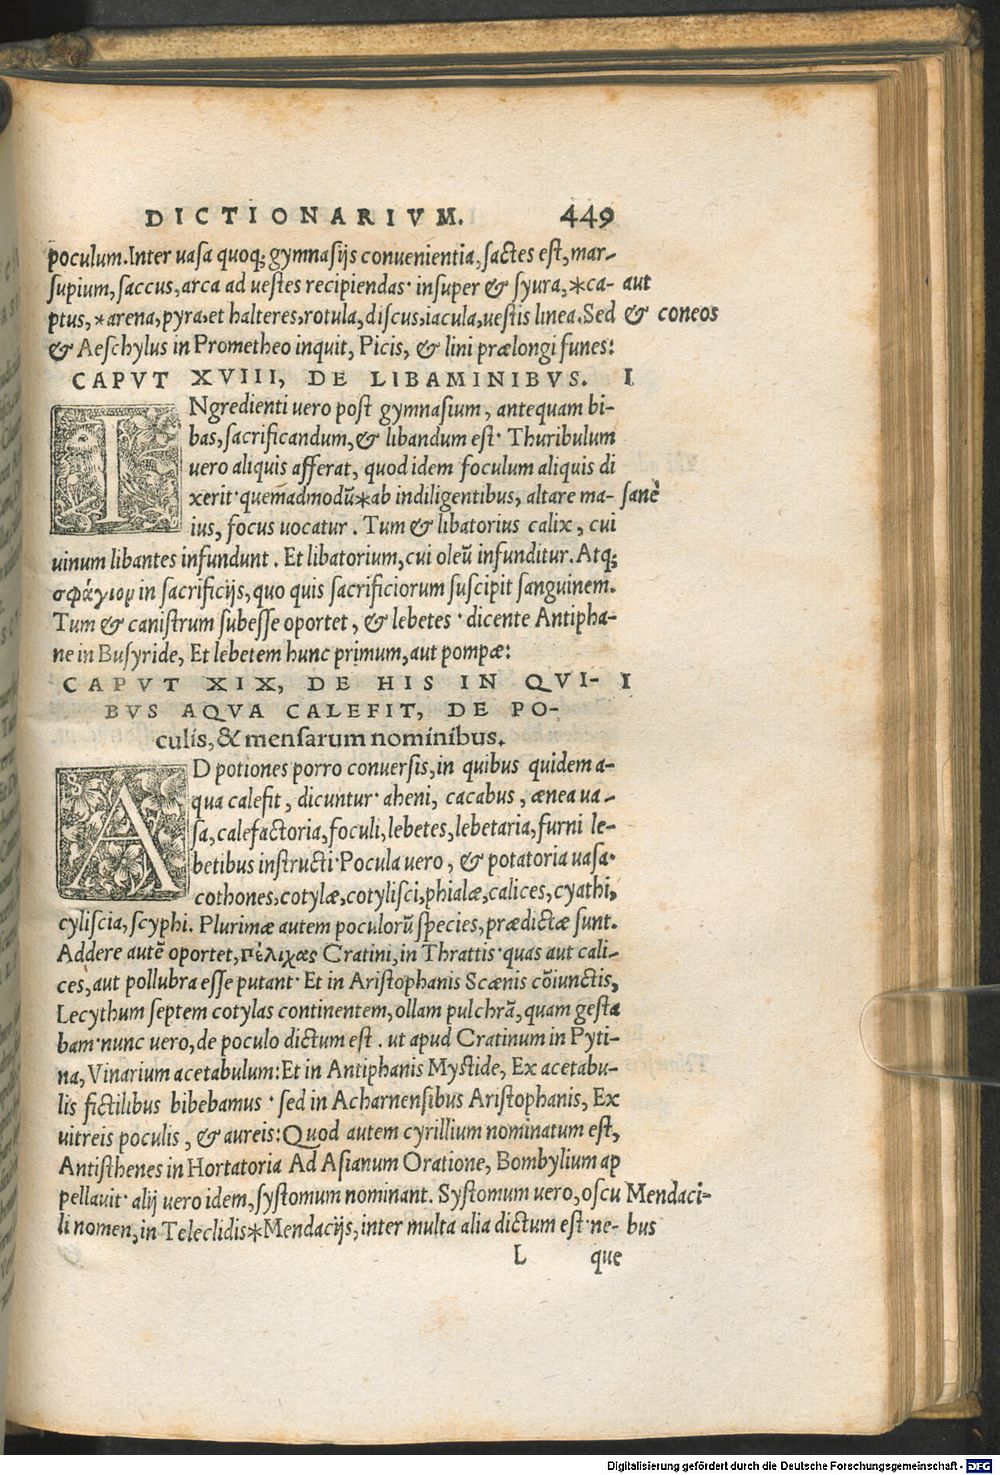 DICTIONARIVM. 449
poculum. Inter uasa quoq; gymnasijs conuenientia, sactes est, mar-
supium, saccus, arca ad uestes recipiendas· insuper & syura, *ca- aut
ptus, *arena, pyra, et halteres, rotula, discus, iacula, uestis linea. Sed & coneos
& Aeschylus in Prometheo inquit, Picis, & lini prælongi funes:
CAPVT XVIII, DE LIBAMINIBVS. I
INgredienti uero post gymnasium, antequam bi-
bas, sacrificandum, & libandum est· Thuribulum
uero aliquis afferat, quod idem foculum aliquis di
xerit· quemadmodũ *ab indiligentibus, altare ma- sanè
ius, focus uocatur. Tum & libatorius calix, cui
uinum libantes infundunt. Et libatorium, cui oleũ infunditur. Atq;
σφάγιον in sacrificijs, quo quis sacrificiorum suscipit sanguinem.
Tum & canistrum subesse oportet, & lebetes· dicente Antipha-
ne in Busyride, Et lebetem hunc primum, aut pompæ:
CAPVT XIX, DE HIS IN QVI- I
BVS AQVA CALEFIT, DE PO-
culis, & mensarum nominibus.
AD potiones porro conuersis, in quibus quidem a-
qua calefit, dicuntur· aheni, cacabus, ænea ua-
sa, calefactoria, foculi, lebetes, lebetaria, furni le-
betibus instructi· Pocula uero, & potatoria uasa·
cothones, cotylæ, cotylisci, phialæ, calices, cyathi,
cyliscia, scyphi. Plurimæ autem poculorũ species, prædictæ sunt.
Addere autẽ oportet, πέλιχας Cratini, in Thrattis· quas aut cali-
ces, aut pollubra esse putant· Et in Aristophanis Scænis cõiunctis,
Lecythum septem cotylas continentem, ollam pulchrã, quam gesta
bam· nunc uero, de poculo dictum est. ut apud Cratinum in Pyti-
na, Vinarium acetabulum: Et in Antiphanis Mystide, Ex acetabu-
lis fictilibus bibebamus· sed in Acharnensibus Aristophanis, Ex
uitreis poculis, & aureis: Quod autem cyrillium nominatum est,
Antisthenes in Hortatoria Ad Asianum Oratione, Bombylium ap
pellauit· alij uero idem, systomum nominant. Systomum uero, oscu Mendaci-
li nomen, in Teleclidis *Mendacijs, inter multa alia dictum est· ne- bus
L que
Digitalisierung gefördert durch die Deutsche Forschungsgemeinschaft - DFG